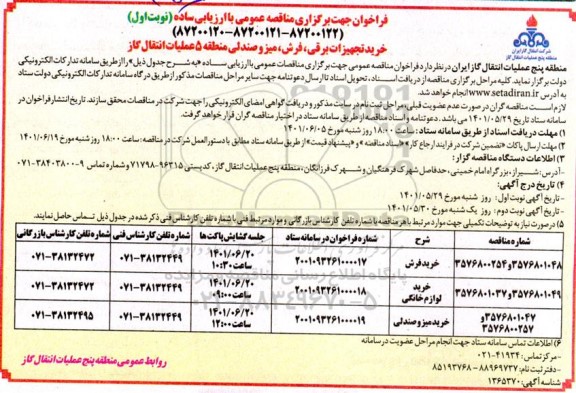 فراخوان جهت برگزاری مناقصه عمومی با ارزیابی ساده (نوبت اول)
(۸۷۲۰۰۱۲۰-۸۷۲۰۰۱۲۱-۸۷۲۰۰۱۲۲)
خرید تجهیزات برقی، فرش، میز و صندلی منطقه ۵ عملیات انتقال گاز
شرکت انتقال گاز ایران
منطقه پنج عملیات انتقال گاز ایران در نظر دارد فراخوان مناقصه عمومی جهت برگزاری مناقصات عمومی با ارزیابی ساده «به شرح جدول ذیل» را از طریق سامانه تدارکات الکترونیکی
دولت برگزار نماید. کلیه مراحل برگزاری مناقصه از دریافت اسناد، تحویل اسناد تا ارسال دعوتنامه جهت سایر مراحل مناقصات مذکور از طریق درگاه سامانه تدارکات الکترونیکی دولت ستاد
به آدرس www.setadiran.ir انجام خواهد شد.
لازم است مناقصه گران در صورت عدم عضویت قبلی، مراحل ثبت نام در سایت مذکور و دریافت گواهی امضای الکترونیکی را جهت شرکت در مناقصات محقق سازند. تاریخ انتشار فراخوان در
سامانه ستاد تاریخ ۱۴۰۱/۰۵/۲۹ می باشد. دعوتنامه و اسناد مناقصه از طریق سامانه ستاد در اختیار مناقصه گران قرار خواهد گرفت.
۱) مهلت دریافت اسناد از طریق سامانه ستاد: ساعت ۱۸:۰۰ روز شنبه مورخ ۱۴۰۱/۰۶/۰۵
۲) مهلت ارسال پاکات «تضمین شرکت در فرایند ارجاع کار» «اسناد مناقصه» و «پیشنهاد قیمت» از طریق سامانه ستاد مطابق با دستورالعمل شرکت در مناقصه: ساعت ۱۸:۰۰ روز شنبه مورخ ۱۴۰۱/۰۶/۱۹
۳) اطلاعات دستگاه مناقصه گزار:
-آدرس: شیراز، بزرگراه امام خمینی، حدفاصل شهرک فرهنگیان و شهرک فرزانگان، منطقه پنج عملیات انتقال گاز، کدپستی ۹۶۳۱۵-۷۱۷۹۸ و شماره تماس ۹-۳۸۴۰۳۸۰۰-۰۷۱
۴) تاریخ درج آگهی:
-تاریخ آگهی نوبت اول: روز شنبه مورخ ۱۴۰۱/۰۵/۲۹
-تاریخ آگهی نوبت دوم: روز یک شنبه مورخ ۱۴۰۱/۰۵/۳۰
۵) در صورت نیاز به توضیحات تکمیلی جهت موارد مرتبط با هر مناقصه با شماره تلفن کارشناس بازرگانی و موارد مرتبط فنی با شماره تلفن کارشناس فنی ذکر شده در جدول ذیل تماس حاصل نمایند.
شماره مناقصه شرح شماره فراخوان در سامانه ستاد جلسه گشایش پاکت ها شماره تلفن کارشناس فنی شماره تلفن کارشناس بازرگانی
۳۵۷۶۸۰۱۰۴۸ و ۳۵۷۶۸۰۰۲۵۴ خرید فرش ۲۰۰۱۰۹۳۲۶۱۰۰۰۰۱۷ ۱۴۰۱/۰۶/۲۰ ساعت ۱۰:۳۰ ۰۷۱-۳۸۱۳۲۴۴۹ ۰۷۱-۳۸۱۳۲۴۷۲
۳۵۷۶۸۰۱۰۴۹ و ۳۵۷۶۸۰۱۰۳۷ خرید لوازم خانگی ۲۰۰۱۰۹۳۲۶۱۰۰۰۰۱۸ ۱۴۰۱/۰۶/۲۰ ساعت ۰۹:۰۰ ۰۷۱-۳۸۱۳۲۴۴۹ ۰۷۱-۳۸۱۳۲۴۷۲
۳۵۷۶۸۰۱۰۴۷ و ۳۵۷۶۸۰۰۲۵۷ خرید میز و صندلی ۲۰۰۱۰۹۳۲۶۱۰۰۰۰۱۹ ۱۴۰۱/۰۶/۲۰ ساعت ۱۲:۰۰ ۰۷۱-۳۸۱۳۲۴۴۹ ۰۷۱-۳۸۱۳۲۴۹۵
۶) اطلاعات تماس سامانه ستاد جهت انجام مراحل عضویت در سامانه
-مرکز تماس: ۴۱۹۳۴-۰۲۱
-دفتر ثبت نام: ۸۸۹۶۹۷۳۷ - ۸۵۱۹۳۷۶۸
شناسه آگهی: ۱۳۶۵۳۷۰
روابط عمومی منطقه پنج عملیات انتقال گاز